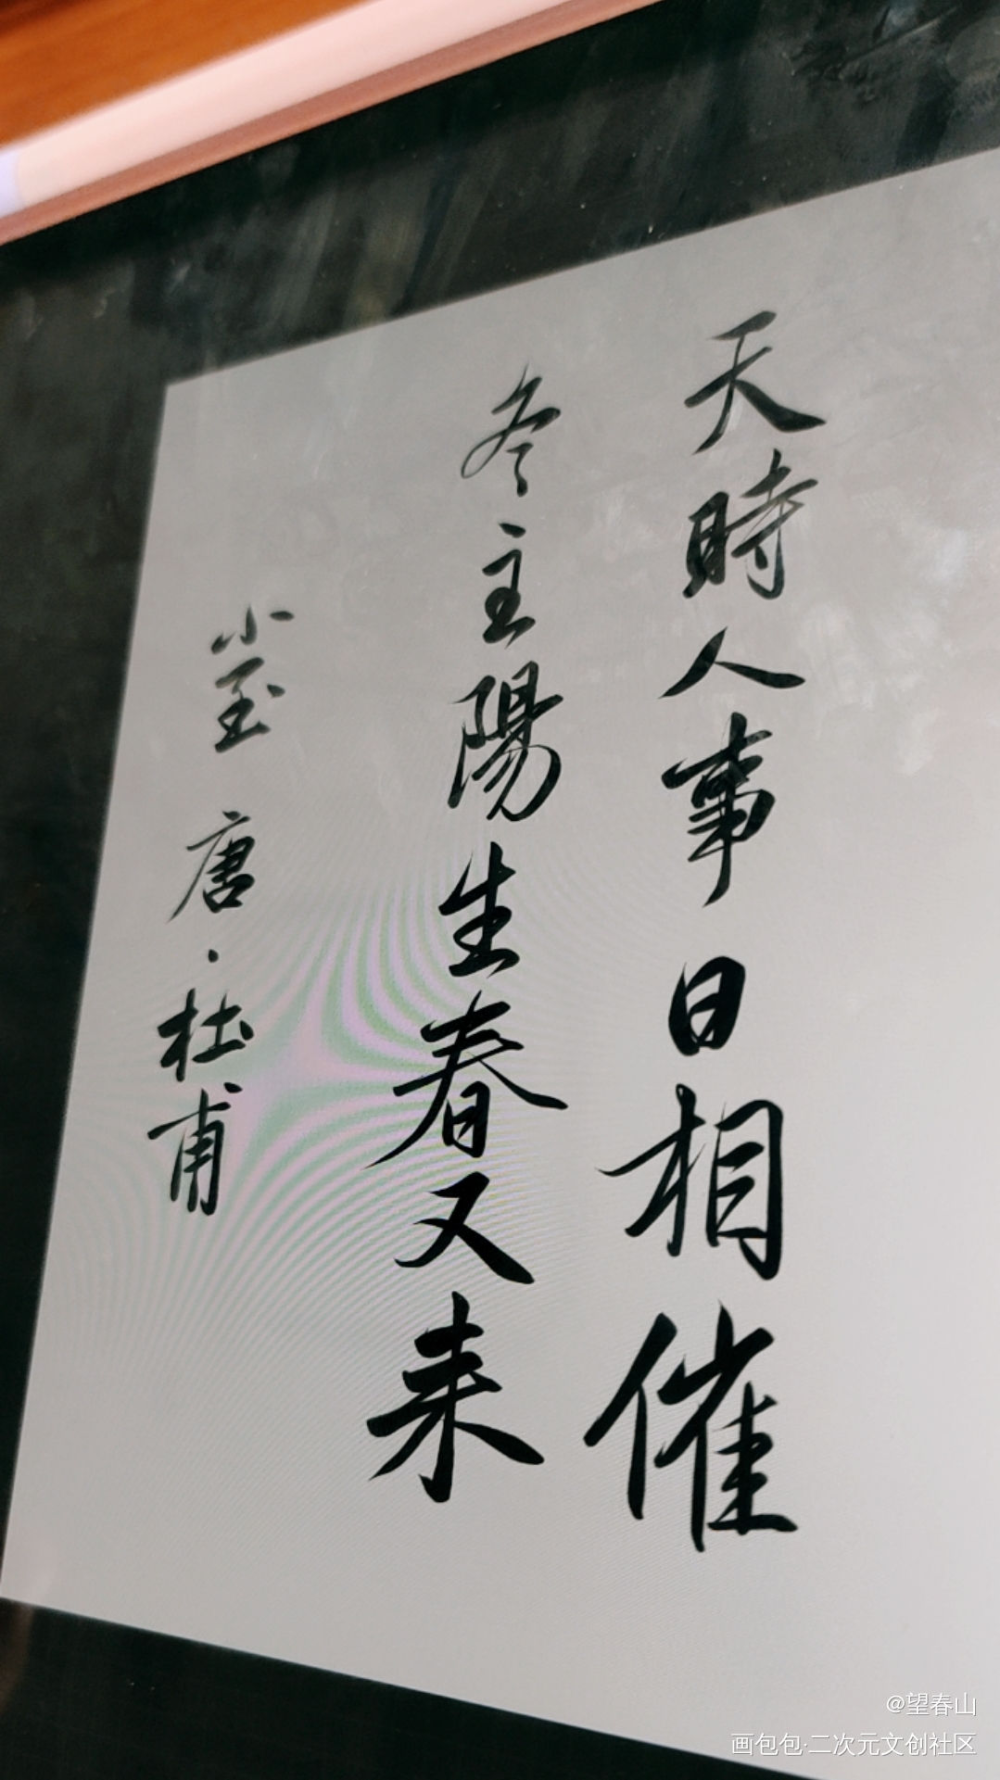 天時人事日相催
冬主陽生春又来
小至 唐·杜甫
@望春山
画包包·二次元文创社区